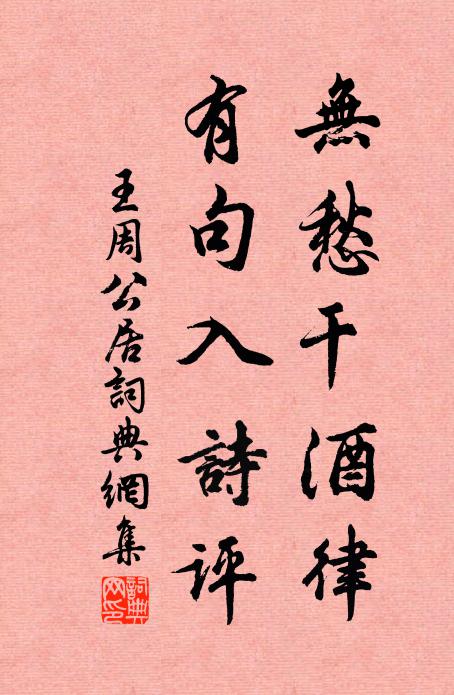 無愁干酒律
有句入詩評
王周公居詞典網集
詞典網印